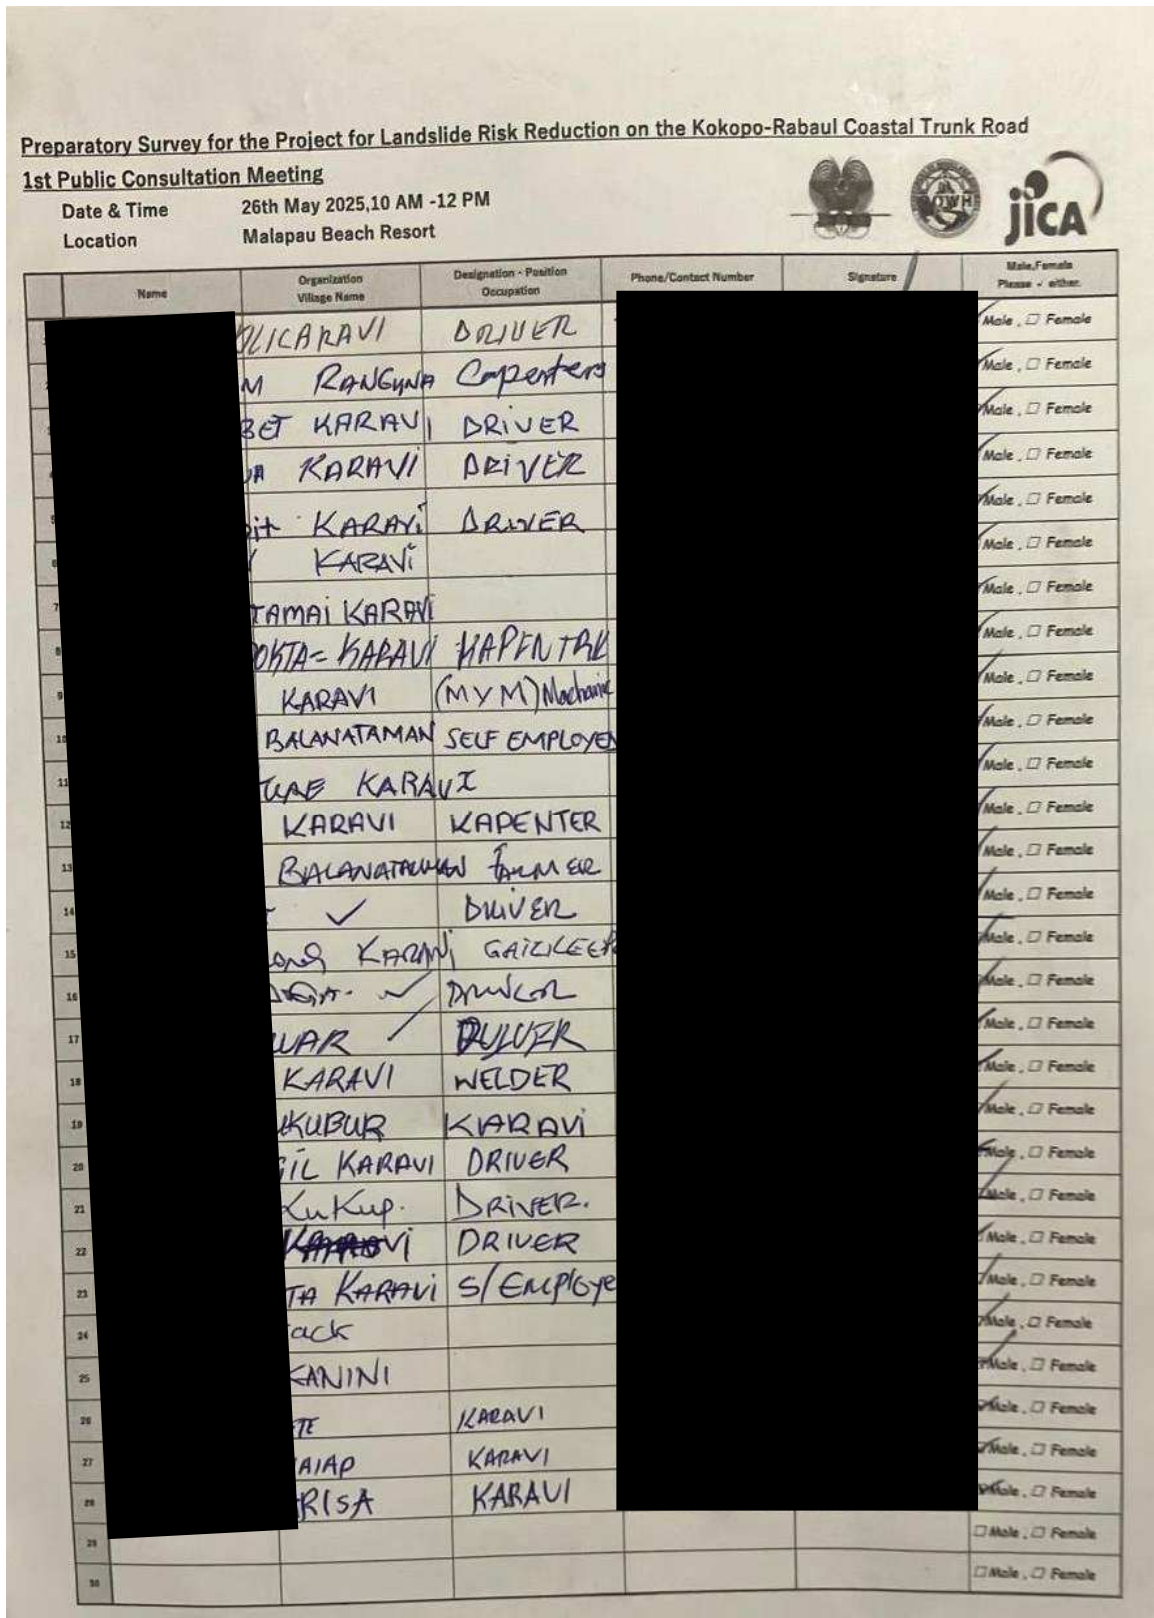 Preparatory Survey for the Project for Landslide Risk Reduction on the Kokopo-Rabaul Coastal Trunk Road
1st Public Consultation Meeting
Date & Time 26th May 2025,10 AM -12 PM
Location Malapau Beach Resort
jICA
Name Organization Village Name Designation - Position Occupation Phone/Contact Number Signature Male,Female Please ✓ either.
KARAVI DRIVER Male , Female
M RANGUNA Capenters Male , Female
BET KARAVI DRIVER Male , Female
KARAVI DRIVER Male , Female
5 KARAVI DRIVER Male , Female
6 KARAVI Male , Female
7 TAMAI KARAVI Male , Female
8 KARAVI KAPENTRE Male , Female
9 KARAVI (MYM) Machanic Male , Female
10 BALANATAMAN SELF EMPLOYED Male , Female
11 KARAVI Male , Female
12 KARAVI KAPENTER Male , Female
13 BALANATAMAN FARMER Male , Female
14 ✓ DRIVER Male , Female
15 KARAVI Male , Female
16 ✓ Male , Female
17 WAR Male , Female
18 KARAVI WELDER Male , Female
19 KUBUR KARAVI Male , Female
20 GIL KARAVI DRIVER Male , Female
21 KuKup. DRIVER. Male , Female
22 DRIVER Male , Female
23 TA KARAVI S/Employe Male , Female
24 ack Male , Female
25 KANINI Male , Female
26 TE KARAVI Male , Female
27 AIAP KARAVI Male , Female
28 RISA KARAVI Male , Female
29 Male , Female
30 Male , Female